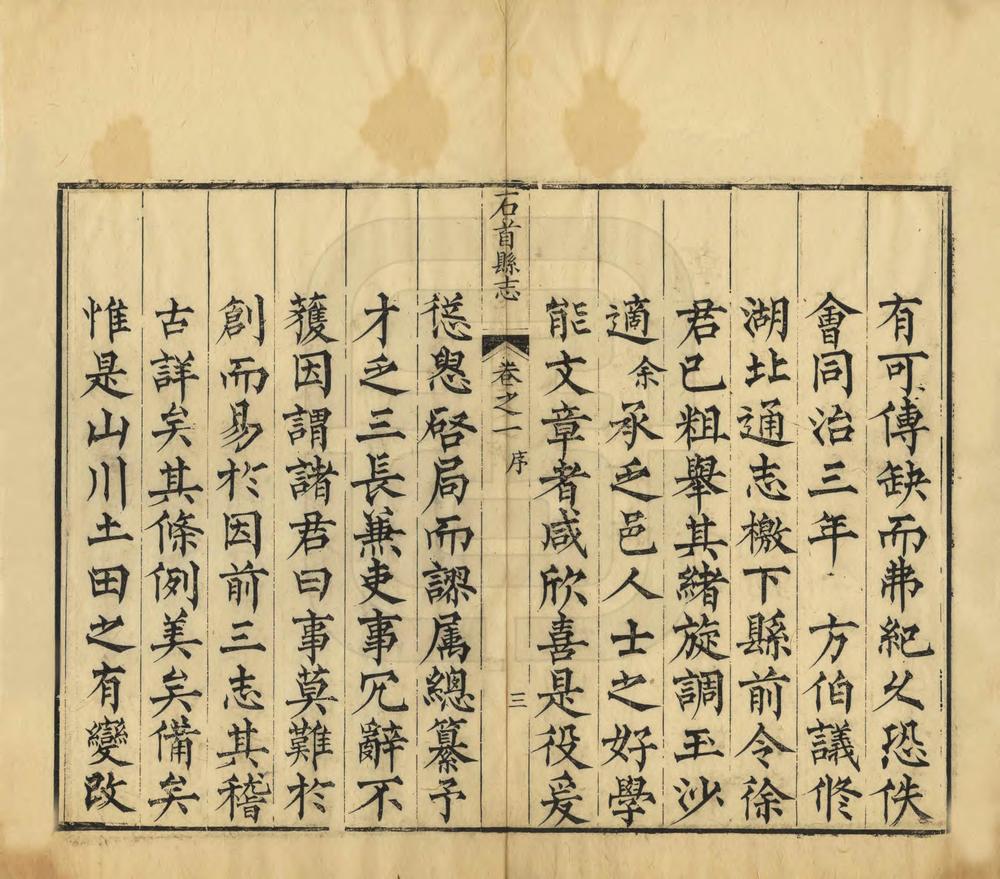 有可傳缺而弗紀久恐佚
會同治三年　方伯議修
湖北通志檄下縣前令徐
君已粗舉其緒旋調玉沙
適余承乏邑人士之好學
能文章者咸欣喜是役爰
石首縣志　卷之一　序　三
慫恿啓局而謬属總纂予
才乏三長兼吏事冗辭不
獲因謂諸君曰事莫難於
創而易於因前三志其稽
古詳矣其條例美矣備矣
惟是山川土田之有變改